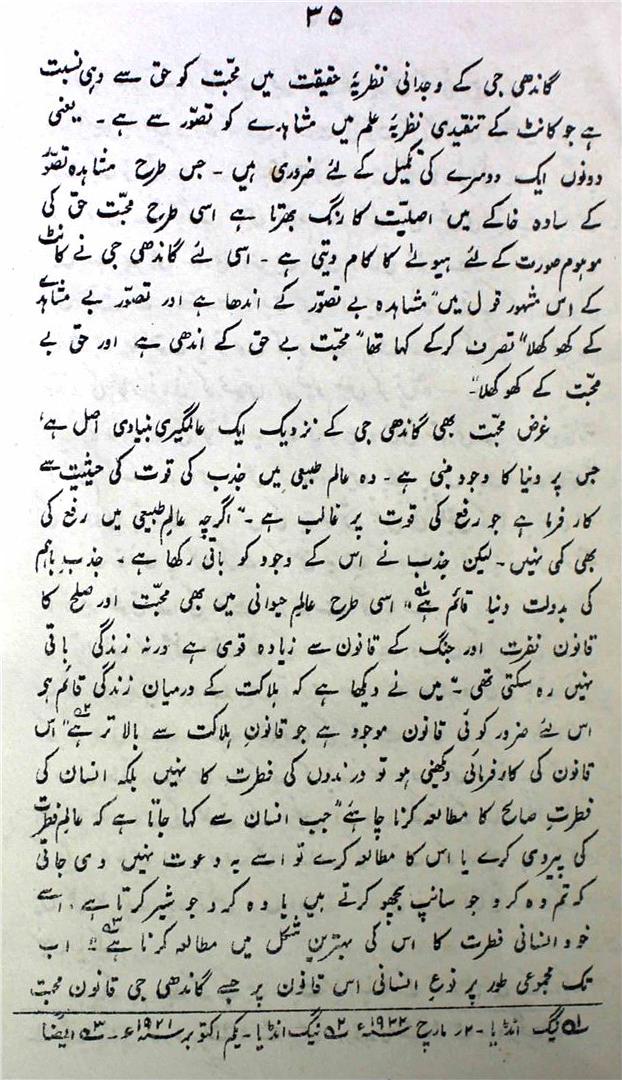 ۳۵
گاندھی جی کے وجدانی نظریۂ حقیقت میں محبّت کو حق سے وہی نسبت
ہے جو کانٹ کے تنقیدی نظریۂ علم میں مشاہدے کو تصوّر سے ہے ۔ یعنی
دونوں ایک دوسرے کی تکمیل کے لئے ضروری ہیں ۔ جس طرح مشاہدہ تصوّر
کے سادہ خاکے میں اصلیّت کا رنگ بھرتا ہے اسی طرح محبّت حق کی
موہوم صورت کے لئے ہیولے کا کام دیتی ہے ۔ اسی لئے گاندھی جی نے کانٹ
کے اس مشہور قول میں "مشاہدہ بے تصوّر کے اندھا ہے اور تصوّر بے مشاہدے
کے کھوکھلا" تصرف کرکے کہا تھا "محبّت بے حق کے اندھی ہے اور حق بے
محبّت کے کھوکھلا"۔
غرض محبّت بھی گاندھی جی کے نزدیک ایک عالمگیری بنیادی اصل ہے'
جس پر دنیا کا وجود مبنی ہے ۔ وہ عالم طبیعی میں جذب کی قوت کی حیثیت سے
کار فرما ہے جو رفع کی قوت پر غالب ہے ۔ "اگرچہ عالمِ طبیعی میں رفع کی
بھی کمی نہیں ۔ لیکن جذب نے اس کے وجود کو باقی رکھا ہے ۔ جذبِ باہم
کی بدولت دنیا قائم ہے"۱؎ اسی طرح عالمِ حیوانی میں بھی محبّت اور صلح کا
قانون نفرت اور جنگ کے قانون سے زیادہ قوی ہے ورنہ زندگی باقی
نہیں رہ سکتی تھی ۔ "میں نے دیکھا ہے کہ ہلاکت کے درمیان زندگی قائم ہو
اس لئے ضرور کوئی قانون موجود ہے جو قانونِ ہلاکت سے بالا تر ہے"۲؎ اس
قانون کی کارفرمائی دکھنی ہو تو درندوں کی فطرت کا نہیں بلکہ انسان کی
فطرتِ صالح کا مطالعہ کرنا چاہئے "جب انسان سے کہا جاتا ہے کہ عالمِ فطرت
کی پیروی کرے یا اس کا مطالعہ کرے تو اسے یہ دعوت نہیں دی جاتی
کہ تم وہ کرو جو سانپ بچھو کرتے ہیں یا وہ کرو جو شیر کرتا ہے ۔ اسے
خود انسانی فطرت کا اس کی بہترین شکل میں مطالعہ کرنا ہے"۳؎ اب
تک مجموعی طور پر نوعِ انسانی اس قانون پر جسے گاندھی جی قانون محبت
۱؎ ینگ انڈیا ۔ ۲ر مارچ ۱۹۲۲ء ۲؎ ینگ انڈیا ۔ یکم اکتوبر ۱۹۲۱ء ۔ ۳؎ ایضاً